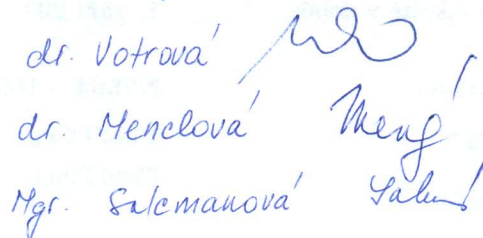 dr. Votrová
dr. Menclová
Mgr. Salcmanová